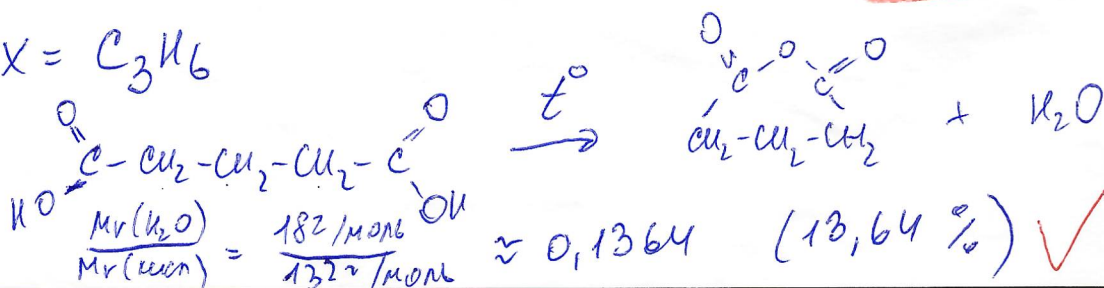 X = C₃H₆
O=C(HO)-CH₂-CH₂-CH₂-C(=O)OH →t° CH₂-CH₂-CH₂ C(=O) O C(=O) + H₂O
Mr(H₂O) / Mr(кисл) = 18 г/моль / 132 г/моль ≈ 0,1364 (13,64 %)